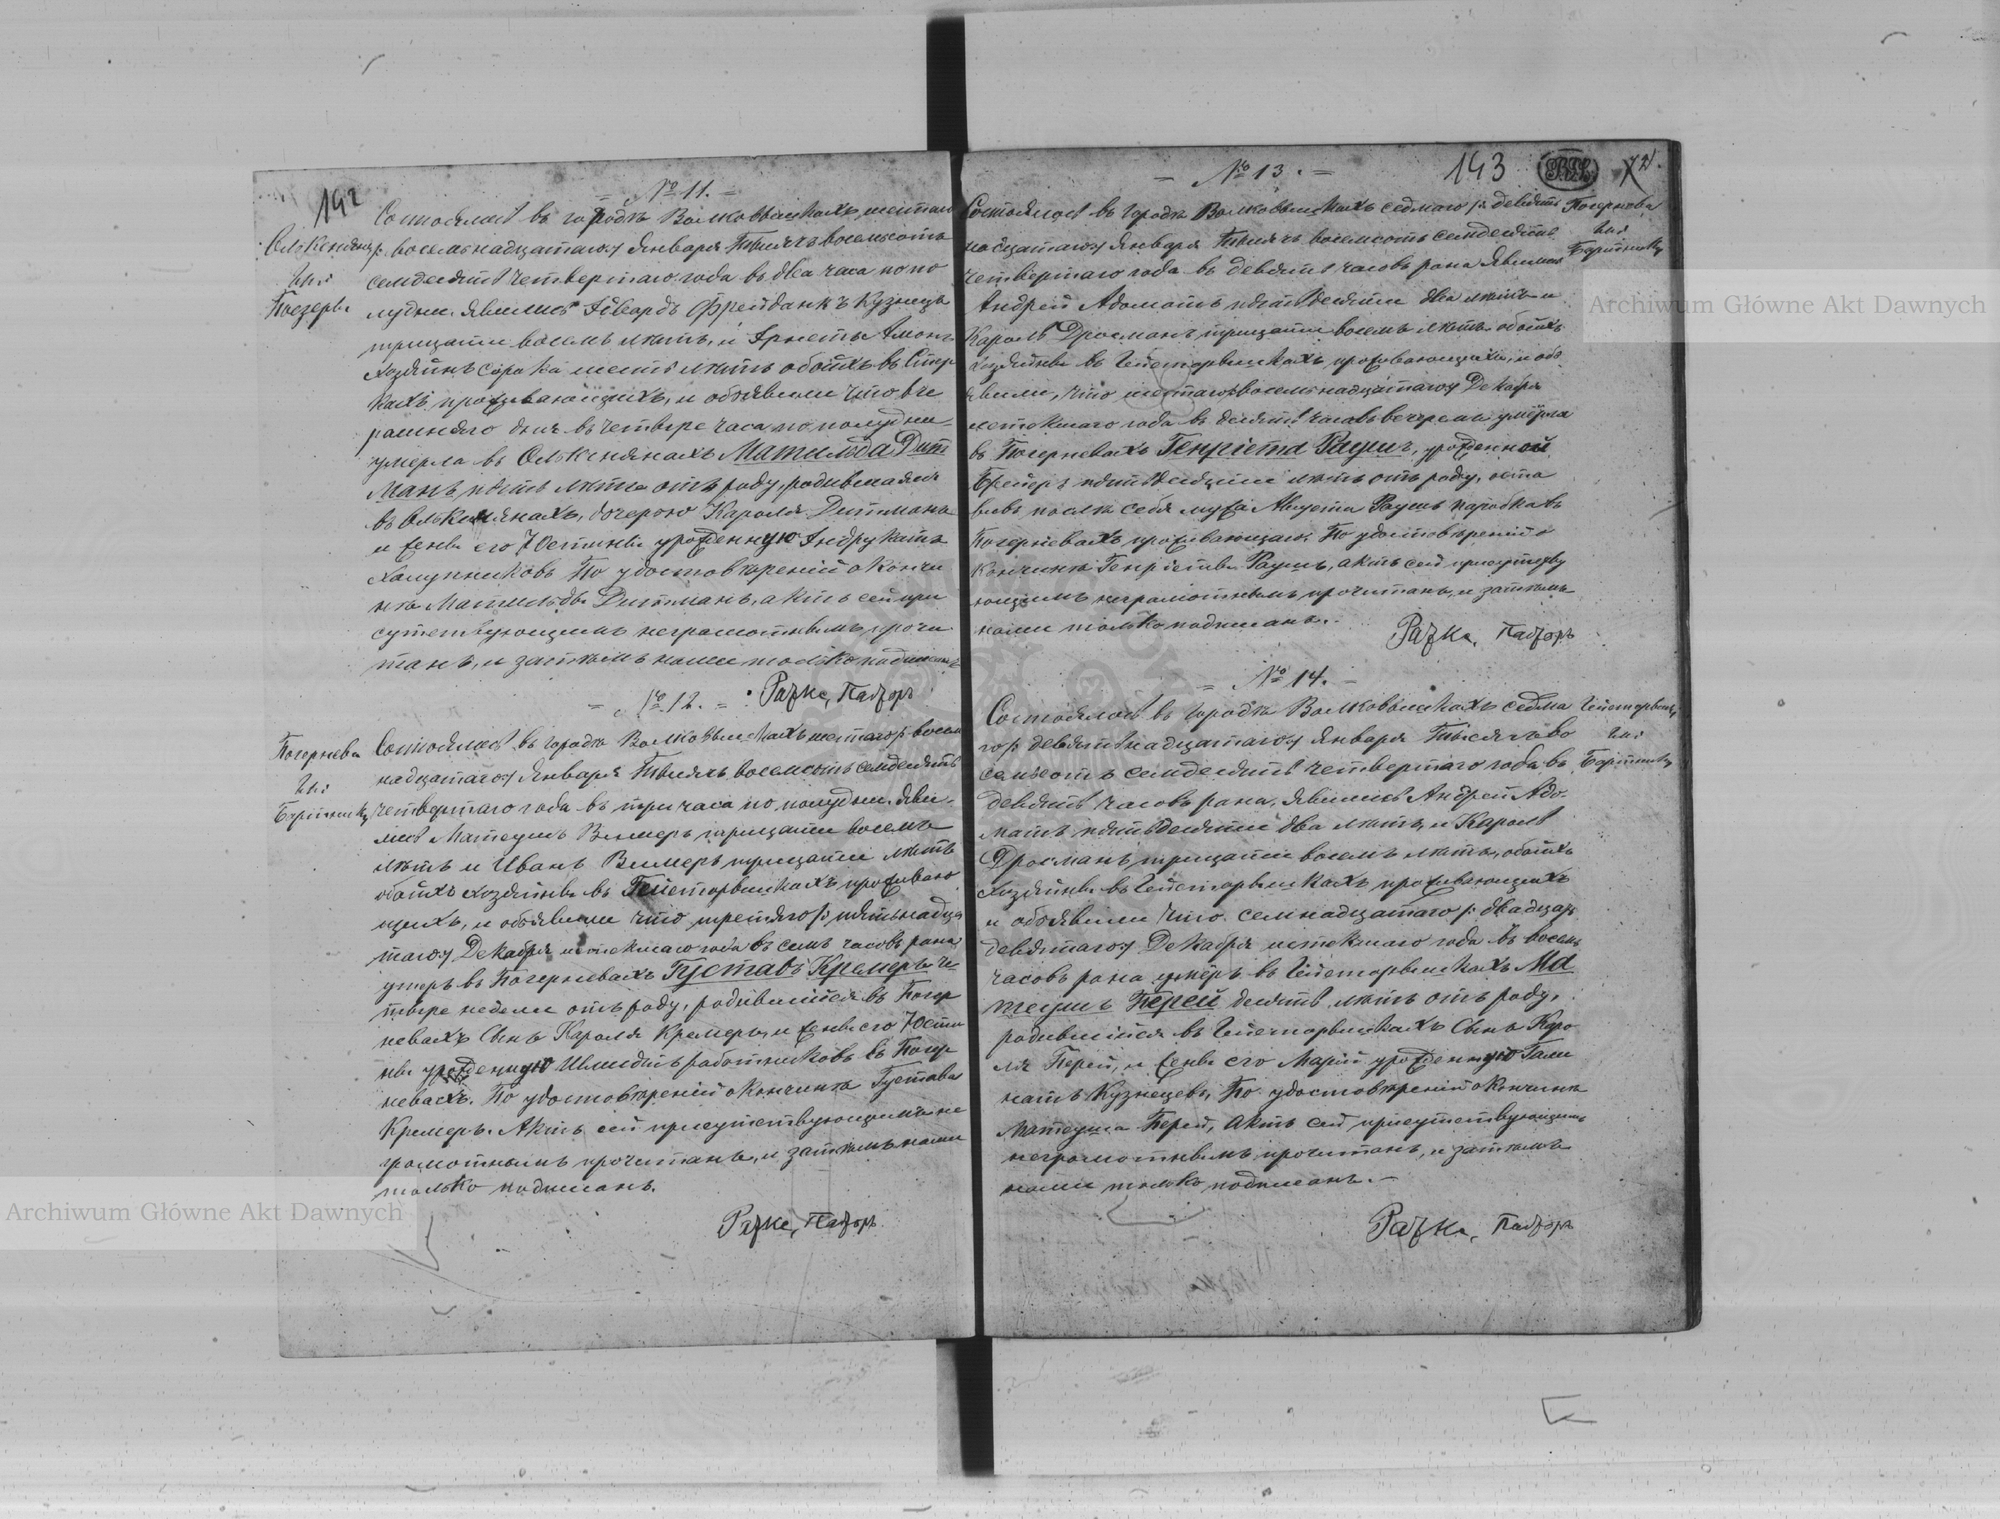 142
= № 11. =
Состоялось въ городѣ Волковышкахъ шестаго
Олькеняны
р: восемьнадцатаго Января Тысяча восемьсотъ
семдесятъ четвертаго года въ два часа по по
Позерве
лудни. Явились Фрейданкъ Кузнецъ
тридцати восемь лѣтъ, и Эрнстъ
Хозяинъ сорока шесть лѣтъ обоихъ въ
кахъ проживающихъ, и объявили что вче
рашняго дня въ четвере часа по полудни
умерла въ Олькенянахъ Матильда Дит
манъ пять лѣтъ отъ роду, родившаяся
въ Олькенянахъ, дочерою Кароля Дитмана
и жены его Юстины урожденную Индрукатъ
Халупниковъ По удостовѣреніи о кончи
нѣ Матильды Дитманъ, актъ сей при
сутствующимъ неграмотнымъ прочи
танъ, и затѣмъ нами только подписанъ
Ражка, Пасторъ
= № 12. =
Погернева
Состоялось въ городѣ Волковышкахъ шестаго р: восемь
надцатаго Января Тысяча восемьсотъ семдесятъ
четвертаго года въ три часа по полудни. Яви-
лись Матеушъ Вимеръ тридцати восемь
лѣтъ и Иванъ Вимеръ тридцати лѣтъ
обоихъ хозяины въ Гейсторвишкахъ проживаю
щихъ, и объявили что третяго р: пятьнадца
таго Декабря истекшаго года въ семь часовъ рана
умеръ въ Погерневахъ Густавъ Кремеръ че
твере недели отъ роду, родившійся въ Погер
невахъ Сынъ Кароля Кремеръ, и жены его Юсти
ны урожденную Шмидтъ работниковъ въ Погер
невахъ. По удостовѣреніи о кончинѣ Густава
Кремеръ. Актъ сей присутствующимъ не
грамотнымъ прочитанъ, и затѣмъ нами
только подписанъ.
Ражка, Пасторъ
143
72.
= № 13. =
Состоялось въ городѣ Волковышкахъ седмаго р: девять
Погернова
надцатаго Января Тысяча восемсотъ семдесятъ
четвертаго года въ девять часовъ рана Явились
Андрей Адоматъ пятьдесяти два лѣтъ и
Кароль Дросманъ тридцати восемь лѣтъ обоихъ
хозяины въ Гейсторвишкахъ проживающихъ, и объ
явили, что шестаго р: восемьнадцатаго Декабря
истекшаго года въ десять часовъ вечеремъ умерла
въ Погерневахъ Генріета Раушъ, урожденной
Брейеръ пятьдесяти лѣтъ отъ роду, оста
вивъ послѣ себя мужа Августа Раушъ паробка въ
Погерневахъ проживающаго. По удостовѣреніи о
кончинѣ Генріеты Раушъ, актъ сей присутству
ющимъ неграмотнымъ прочитанъ, и затѣмъ
нами только подписанъ.
Ражка, Пасторъ
= № 14. =
Состоялось въ городѣ Волковышкахъ седма
го р: девятьнадцатаго Января Тысяча во
семьсотъ семдесятъ четвертаго года въ
девять часовъ рана, Явились Андрей Адо-
матъ пятьдесяти два лѣтъ, и Кароль
Дросманъ тридцати восемь лѣтъ, обоихъ
хозяины въ Гейсторвишкахъ проживающихъ
и объявили что семнадцатаго р: двадцать
девятаго Декабря истекшаго года въ восемь
часовъ рана умеръ въ Гейсторвишкахъ Ма
теушъ Перей десять лѣтъ отъ роду,
родившійся въ Гейсторвишкахъ Сынъ Каро-
ля Перей, и жены его Маріи урожденную
Кузнецевъ, По удостовѣреніи о кончинѣ
Матеуша Перей, актъ сей присутствующимъ
неграмотнымъ прочитанъ, и затѣмъ
нами только подписанъ. –
Ражка, Пасторъ
Archiwum Główne Akt Dawnych
Archiwum Główne Akt Dawnych